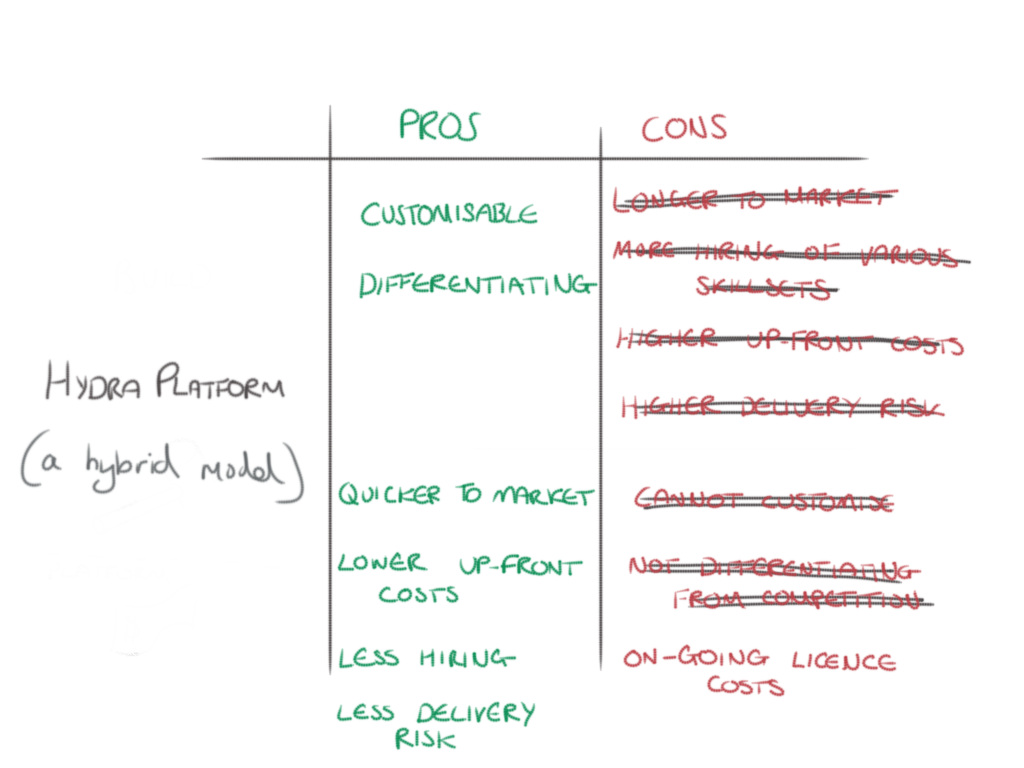 PROS
CONS
CUSTOMISABLE
DIFFERENTIATING
QUICKER TO MARKET
LOWER UP-FRONT
COSTS
LESS HIRING
LESS DELIVERY
RISK
LONGER TO MARKET
MORE HIRING OF VARIOUS
SKILLSETS
HIGHER UP-FRONT COSTS
HIGHER DELIVERY RISK
CANNOT CUSTOMISE
NOT DIFFERENTIATING
FROM COMPETITION
ON-GOING LICENCE
COSTS
HYDRA PLATFORM
(a hybrid model)